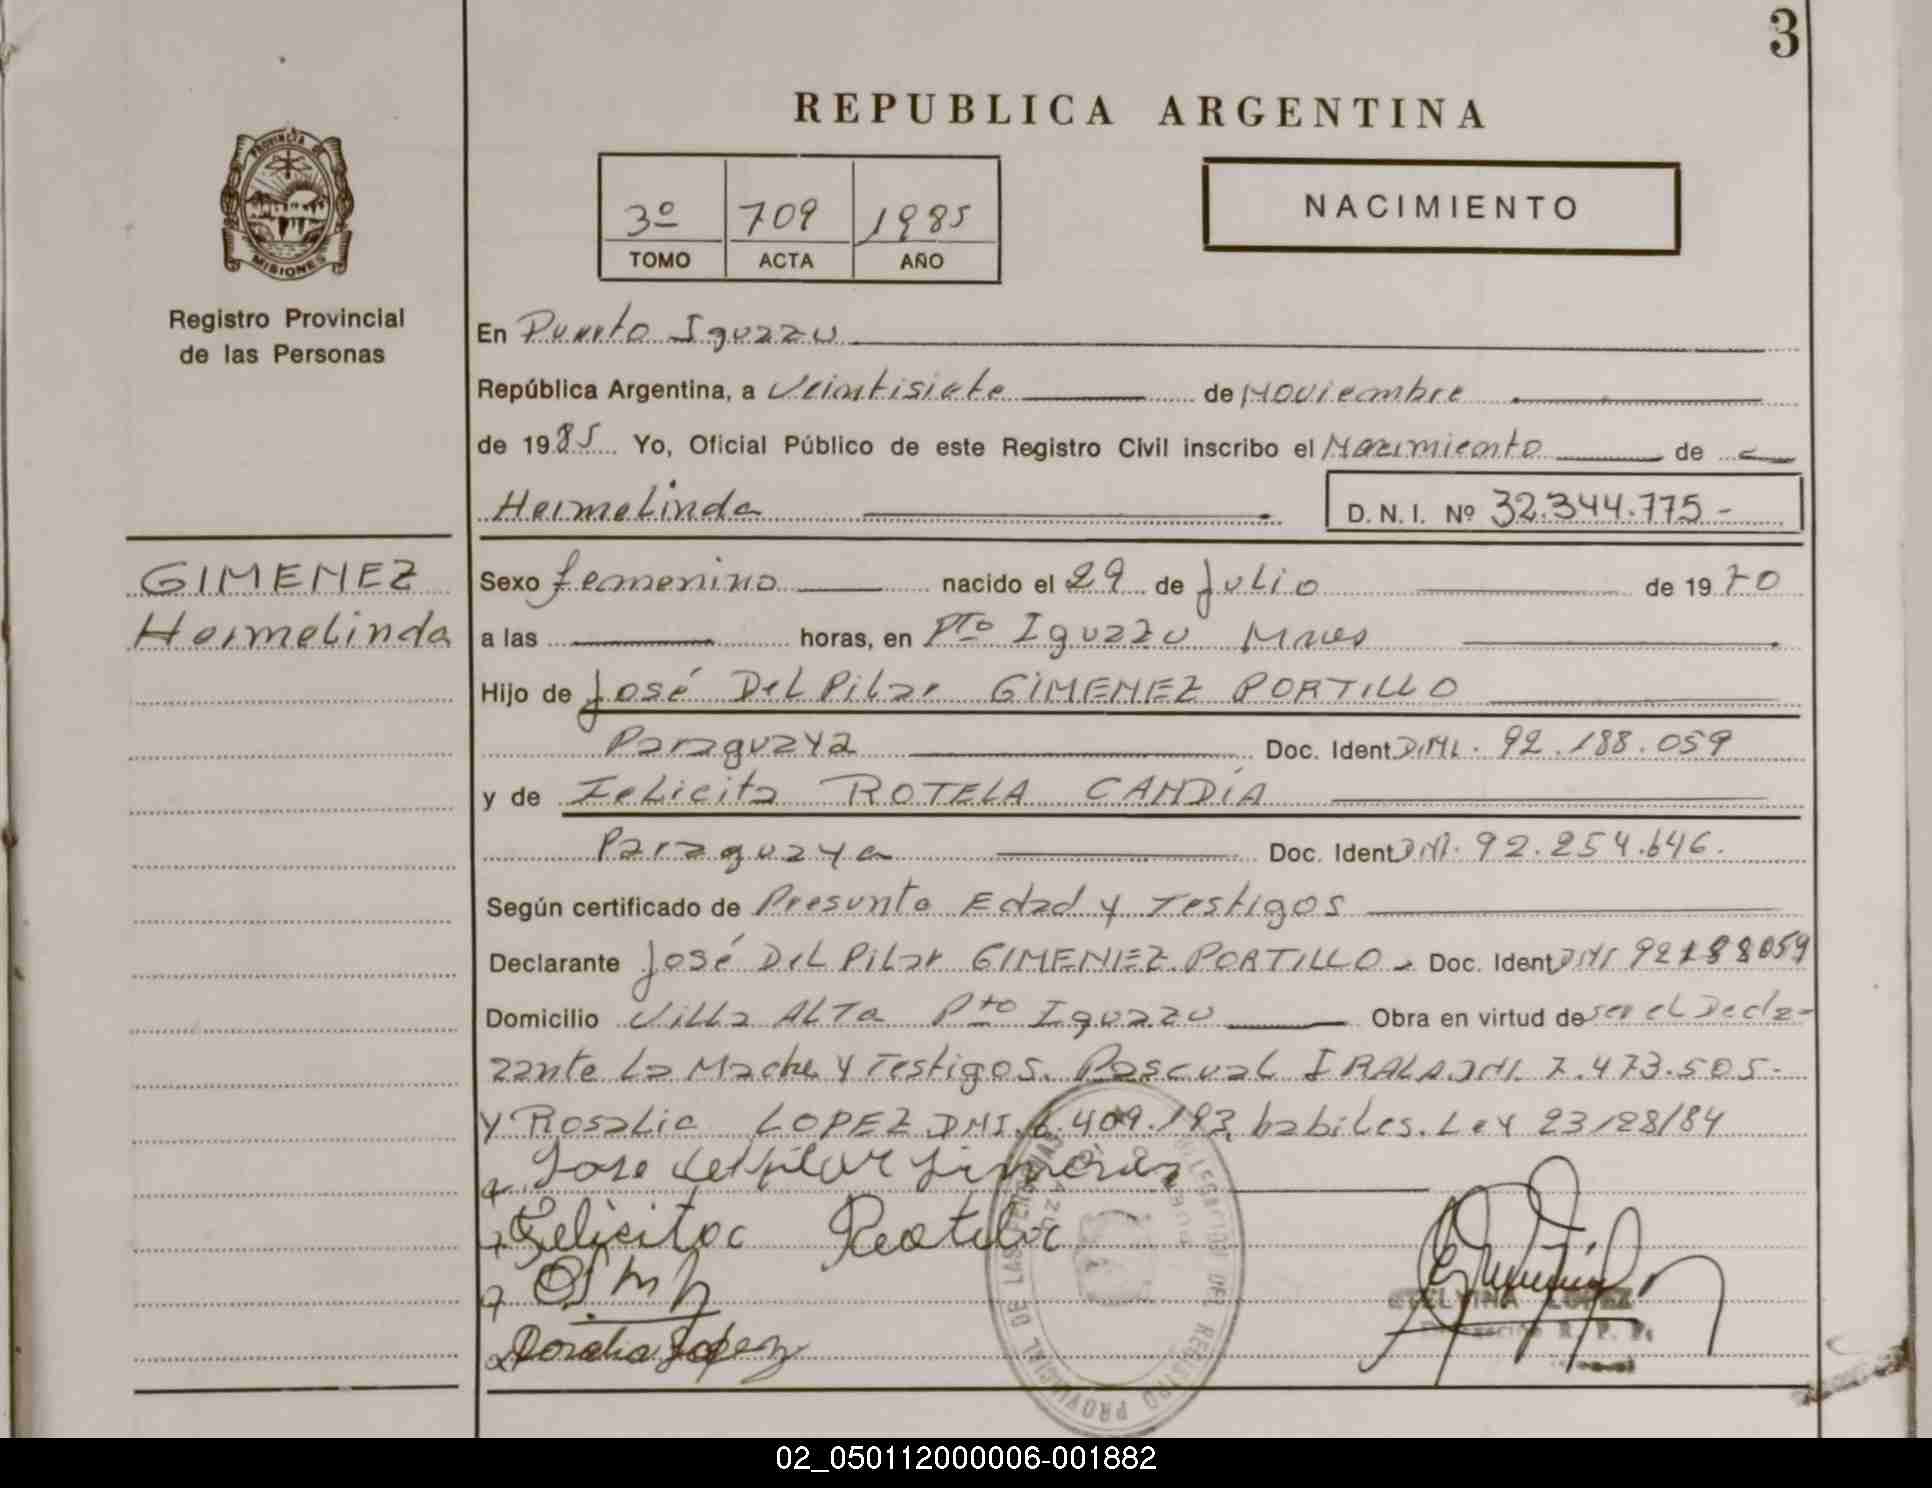 3
REPUBLICA ARGENTINA
PROVINCIA DE
MISIONES
Registro Provincial
de las Personas
3º 709 1985
TOMO ACTA AÑO
NACIMIENTO
En Puerto Iguazu
República Argentina, a Veintisiete de Noviembre
de 1985 Yo, Oficial Público de este Registro Civil inscribo el Nacimiento de
Hermelinda D.N.I. Nº 32.344.775-
GIMENEZ
Hermelinda
Sexo femenino nacido el 29 de Julio de 1970
a las horas, en Pto Iguazu Mnes
Hijo de José Del Pilar GIMENEZ PORTILLO
Paraguaya Doc. Ident DNI. 92.188.059
y de Felicita ROTELA CANDÍA
Paraguaya Doc. Ident DNI. 92.254.646.
Según certificado de Presunta Edad y Testigos
Declarante José Del Pilar GIMENEZ PORTILLO. Doc. Ident DNI 92188059
Domicilio Villa ALTA Pto Iguazu Obra en virtud de ser el Decla-
rante La Madre y Testigos. Pascual IRALA DNI. 7.473.505-
y Rosalia LOPEZ DNI. 6.409.193, habiles. Ley 23/28/84
Jose del Pilar Jimenez
Felicita Rotela
Lopez
ETELVINA LOPEZ
R. P. P.
REGISTRO PROVINCIAL DE LAS PERSONAS
02_050112000006-001882